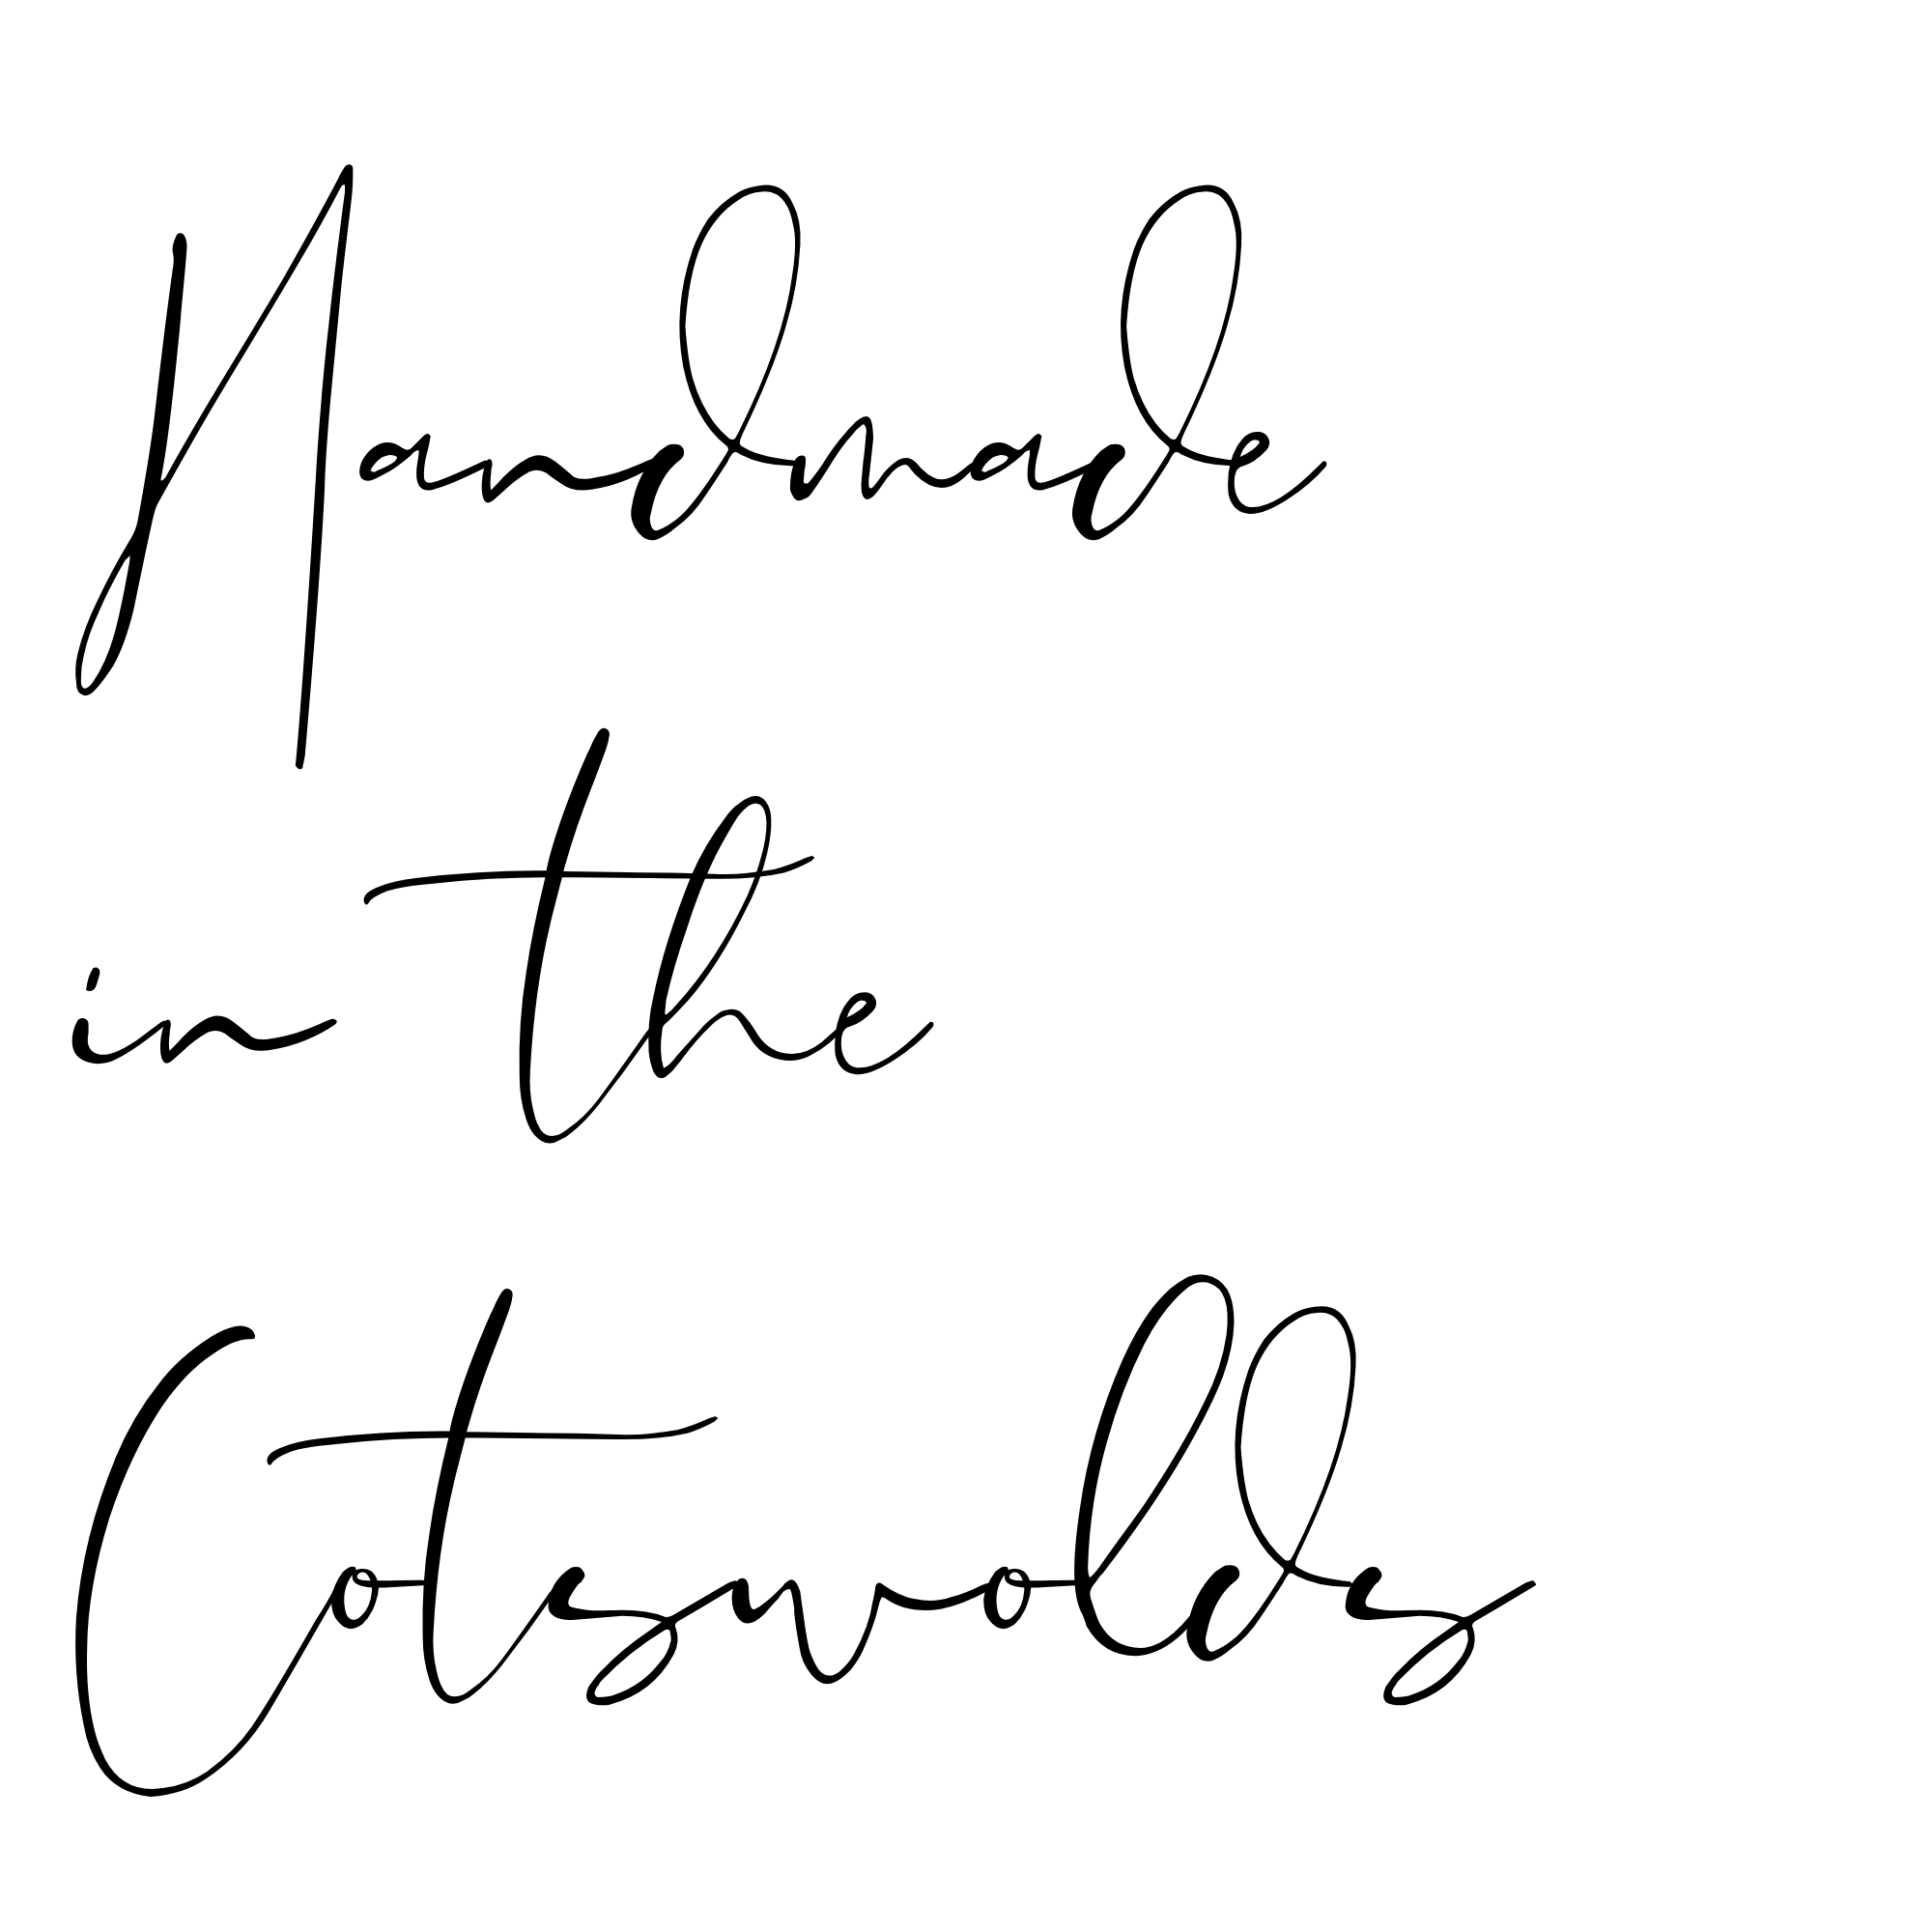 Handmade
in the
Cotswolds